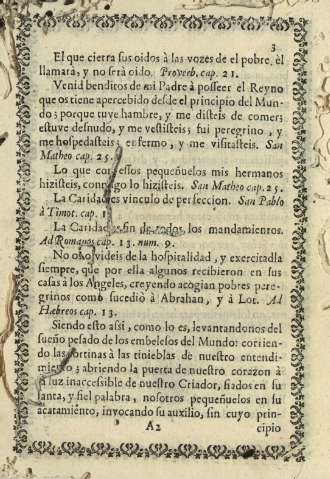 3
El que cierra sus oidos à las vozes de el pobre, èl
llamara, y no serà oido. Proverb. cap. 21.
Venid benditos de mi Padre à posseer el Reyno
que os tiene apercebido desde el principio del Mun-
do; porque tuve hambre, y me disteis de comer;
estuve desnudo, y me vestisteis; fui peregrino, y
me hospedasteis; enfermo, y me visitasteis. San
Matheo cap. 25.
Lo que con essos pequeñuelos mis hermanos
hizisteis, conmigo lo hizisteis. San Matheo cap. 25.
La Caridad es vinculo de perfeccion. San Pablo
à Timot. cap. 1
La Caridad es fin de todos los mandamientos.
Ad Romanos cap. 13. num. 9.
No os olvideis de la hospitalidad, y exercitadla
siempre, que por ella algunos recibieron en sus
casas à los Angeles, creyendo acogian pobres pere-
grinos como sucediò à Abrahan, y à Lot. Ad
Hæbreos cap. 13.
Siendo esto assi, como lo es, levantandonos del
sueño pesado de los embelesos del Mundo: corrien-
do las cortinas à las tinieblas de nuestro entendi-
miento; abriendo la puerta de nuestro corazon à
la luz inaccessible de nuestro Criador, fiados en su
santa, y fiel palabra, nosotros pequeñuelos en su
acatamiẽnto, invocando su auxilio, sin cuyo prin-
A2 cipio